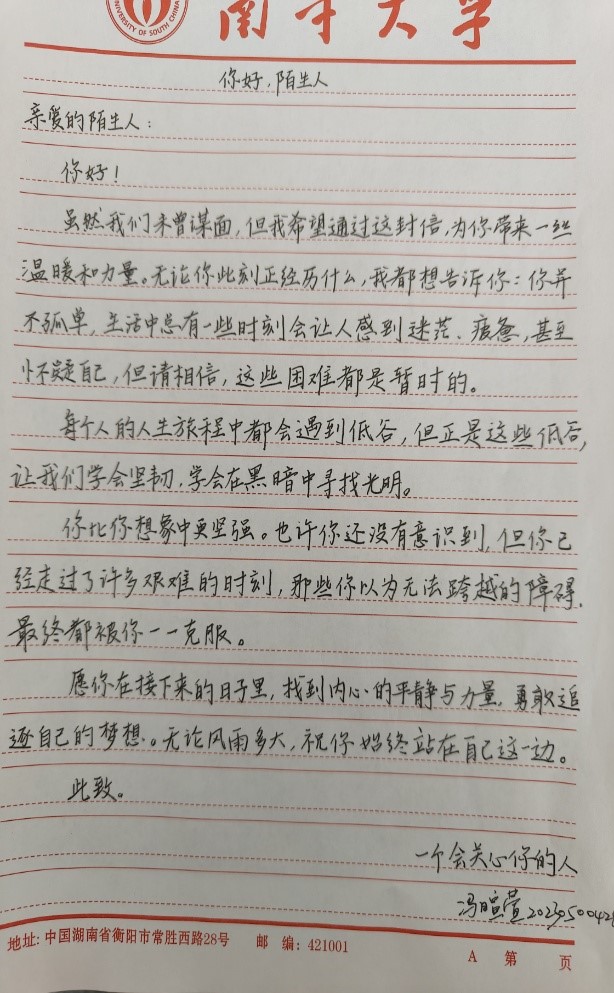 UNIVERSITY OF SOUTH CHINA
南华大学
你好，陌生人
亲爱的陌生人：
你好！
虽然我们未曾谋面，但我希望通过这封信，为你带来一些
温暖和力量。无论你此刻正经历什么，我都想告诉你：你并
不孤单，生活中总有一些时刻会让人感到迷茫、疲惫，甚至
怀疑自己，但请相信，这些困难都是暂时的。
每个人的人生旅程中都会遇到低谷，但正是这些低谷，
让我们学会坚韧，学会在黑暗中寻找光明。
你比你想象中更坚强。也许你还没有意识到，但你已
经走过了许多艰难的时刻，那些你以为无法跨越的障碍，
最终都被你一一克服。
愿你在接下来的日子里，找到内心的平静与力量，勇敢追
逐自己的梦想。无论风雨多大，祝你始终站在自己这一边。
此致。
一个会关心你的人
冯暄萱
地址: 中国湖南省衡阳市常胜西路28号 邮 编: 421001
A 第 页